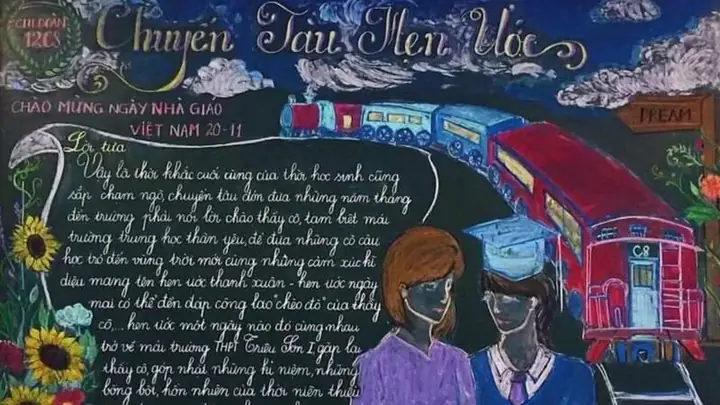 CHI ĐOÀN
12C8
Chuyến Tàu Hẹn Ước
CHÀO MỪNG NGÀY NHÀ GIÁO
VIỆT NAM 20-11
DREAM
Lời tựa
Vậy là thời khắc cuối cùng của thời học sinh cũng
sắp chạm ngõ, chuyến tàu đón đưa những năm tháng
đến trường phải nói lời chào thầy cô, tạm biệt mái
trường trung học thân yêu, để đưa những cô cậu
học trò đến vùng trời mới cùng những cảm xúc kì
diệu mang tên hẹn ước thanh xuân - hẹn ước ngày
mai có thể đền đáp công lao "chèo đò" của thầy
cô,... hẹn ước một ngày nào đó cùng nhau
trở về mái trường THPT Triệu Sơn 1 gặp lại
thầy cô, góp nhặt những kỉ niệm, những
bồng bột, hồn nhiên của thời niên thiếu
C8